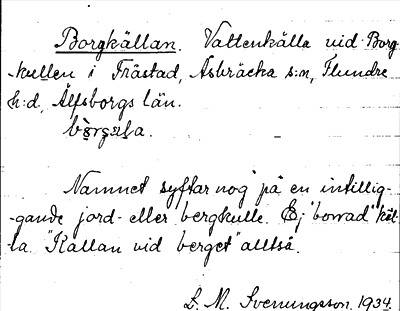 Borgkällan. Vattenkälla vid Borg-
-kullen i Frästad, Åsbräcka s:n, Flundre
h:d, Älfsborgs län.
Namnet syftar nog på en intillig-
-gande jord- eller bergkulle. Ej "borrad" käl-
-la. "Källan vid berget" alltså.
L. M. Svenungsson. 1934.